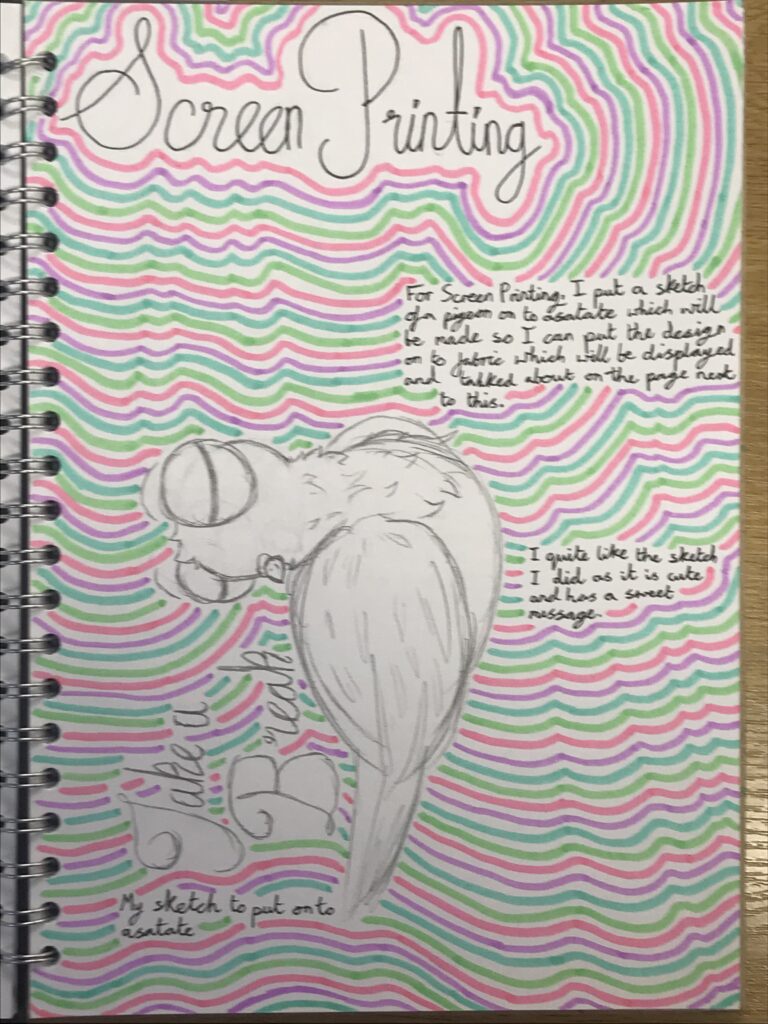 Screen Printing
For Screen Printing. I put a sketch
of a pigeon on to asatate which will
be made so I can put the design
on to fabric which will be displayed
and talked about on the page next
to this.
I quite like the sketch
I did as it is cute
and has a sweet
message.
Take a
Break
My sketch to put onto
asatate